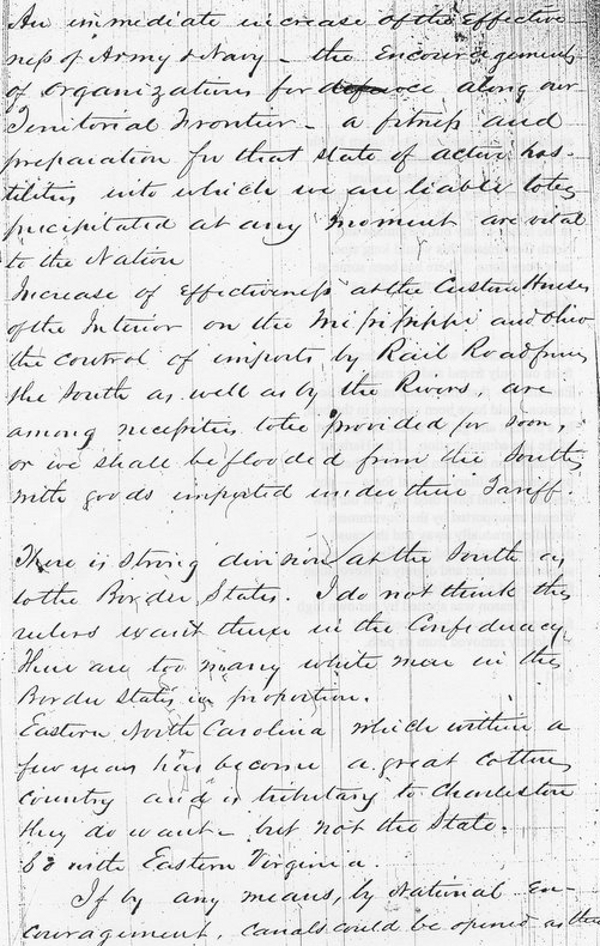 An immediate increase of the Effective-
ness of Army & Navy - the Encouragement
of Organizations for defence along our
Territorial Frontier - a fitness and
preparation for that state of active hos-
tilities into which we are liable to be
precipitated at any moment are vital
to the Nation
Increase of Effectiveness at the Custom Houses
of the Interior on the Mississippi and Ohio
the control of imports by Rail Road from
the South as well as by the Rivers, are
among necessities to be provided for soon,
or we shall be flooded from the South
with goods imported under their Tariff.
There is strong division at the South as
to the Border States. I do not think the
rulers want them in the Confederacy.
There are too many white men in the
Border States in proportion.
Eastern North Carolina which within a
few years has become a great cotton
country and is tributary to Charleston
they do want - but not the State.
So with Eastern Virginia.
If by any means, by National En-
couragement, canals could be opened as the